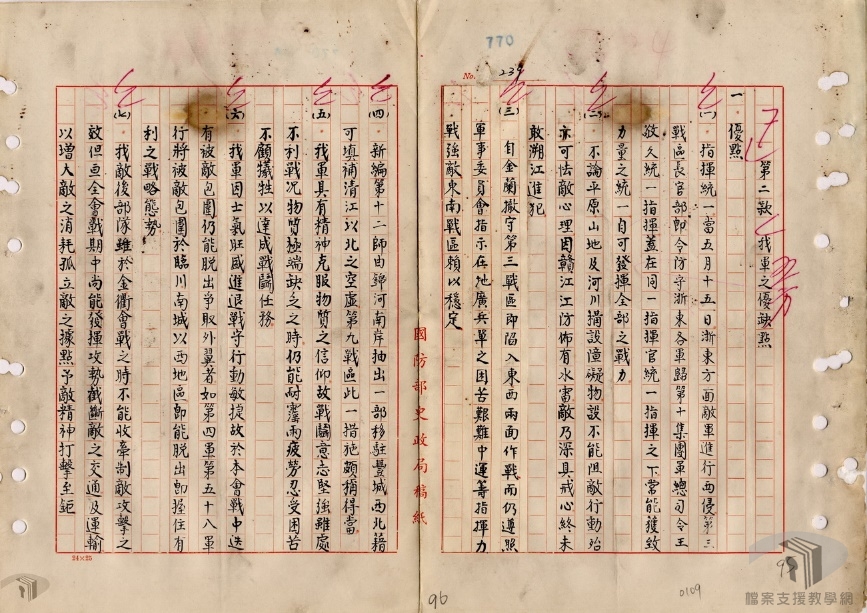 770
No. 239
第二款 我軍之優缺點
一 優點
(一) 指揮統一當五月十五日浙東方面敵軍進行西侵第三
戰區長官部即令防守浙東各軍歸第十集團軍總司令王
敬久統一指揮蓋在同一指揮官統一指揮之下常能獲致
力量之統一自可發揮全部之戰力
(二) 不論平原山地及河川搆設障礙物設不能阻敵行動殆
亦可怯敵心理因贛江江防佈有水雷敵乃深具戒心終未
敢溯江進犯
(三) 自金蘭撤守第三戰區即陷入東西兩面作戰而仍遵照
軍事委員會指示在地廣兵單之困苦艱難中運籌指揮力
戰強敵東南戰區賴以穩定
95
0109
國防部史政局稿紙
(四) 新編第十二師由錦河南岸抽出一部移駐豐城西北藉
可填補清江以北之空虛第九戰區此一措施頗稱得當
(五) 我軍具有精神克服物質之信仰故戰鬪意志堅強雖處
不利戰況物質極端缺乏之時仍能耐霪雨疲勞忍受困苦
不顧犧牲以達成戰鬪任務
(六) 我軍因士氣旺盛進退戰守行動敏捷故於本會戰中迭
有被敵包圍仍能脱出爭取外翼者如第四軍第五十八軍
行將被敵包圍於臨川南城以西地區即能脱出即握住有
利之戰略態勢
(七) 我敵後部隊雖於金衢會戰之時不能收牽制敵攻擊之
效但亘全會戰期中尚能發揮攻勢截斷敵之交通及運輸
以增大敵之消耗孤立敵之據點予敵精神打擊至鉅
24×25
96
檔案支援教學網